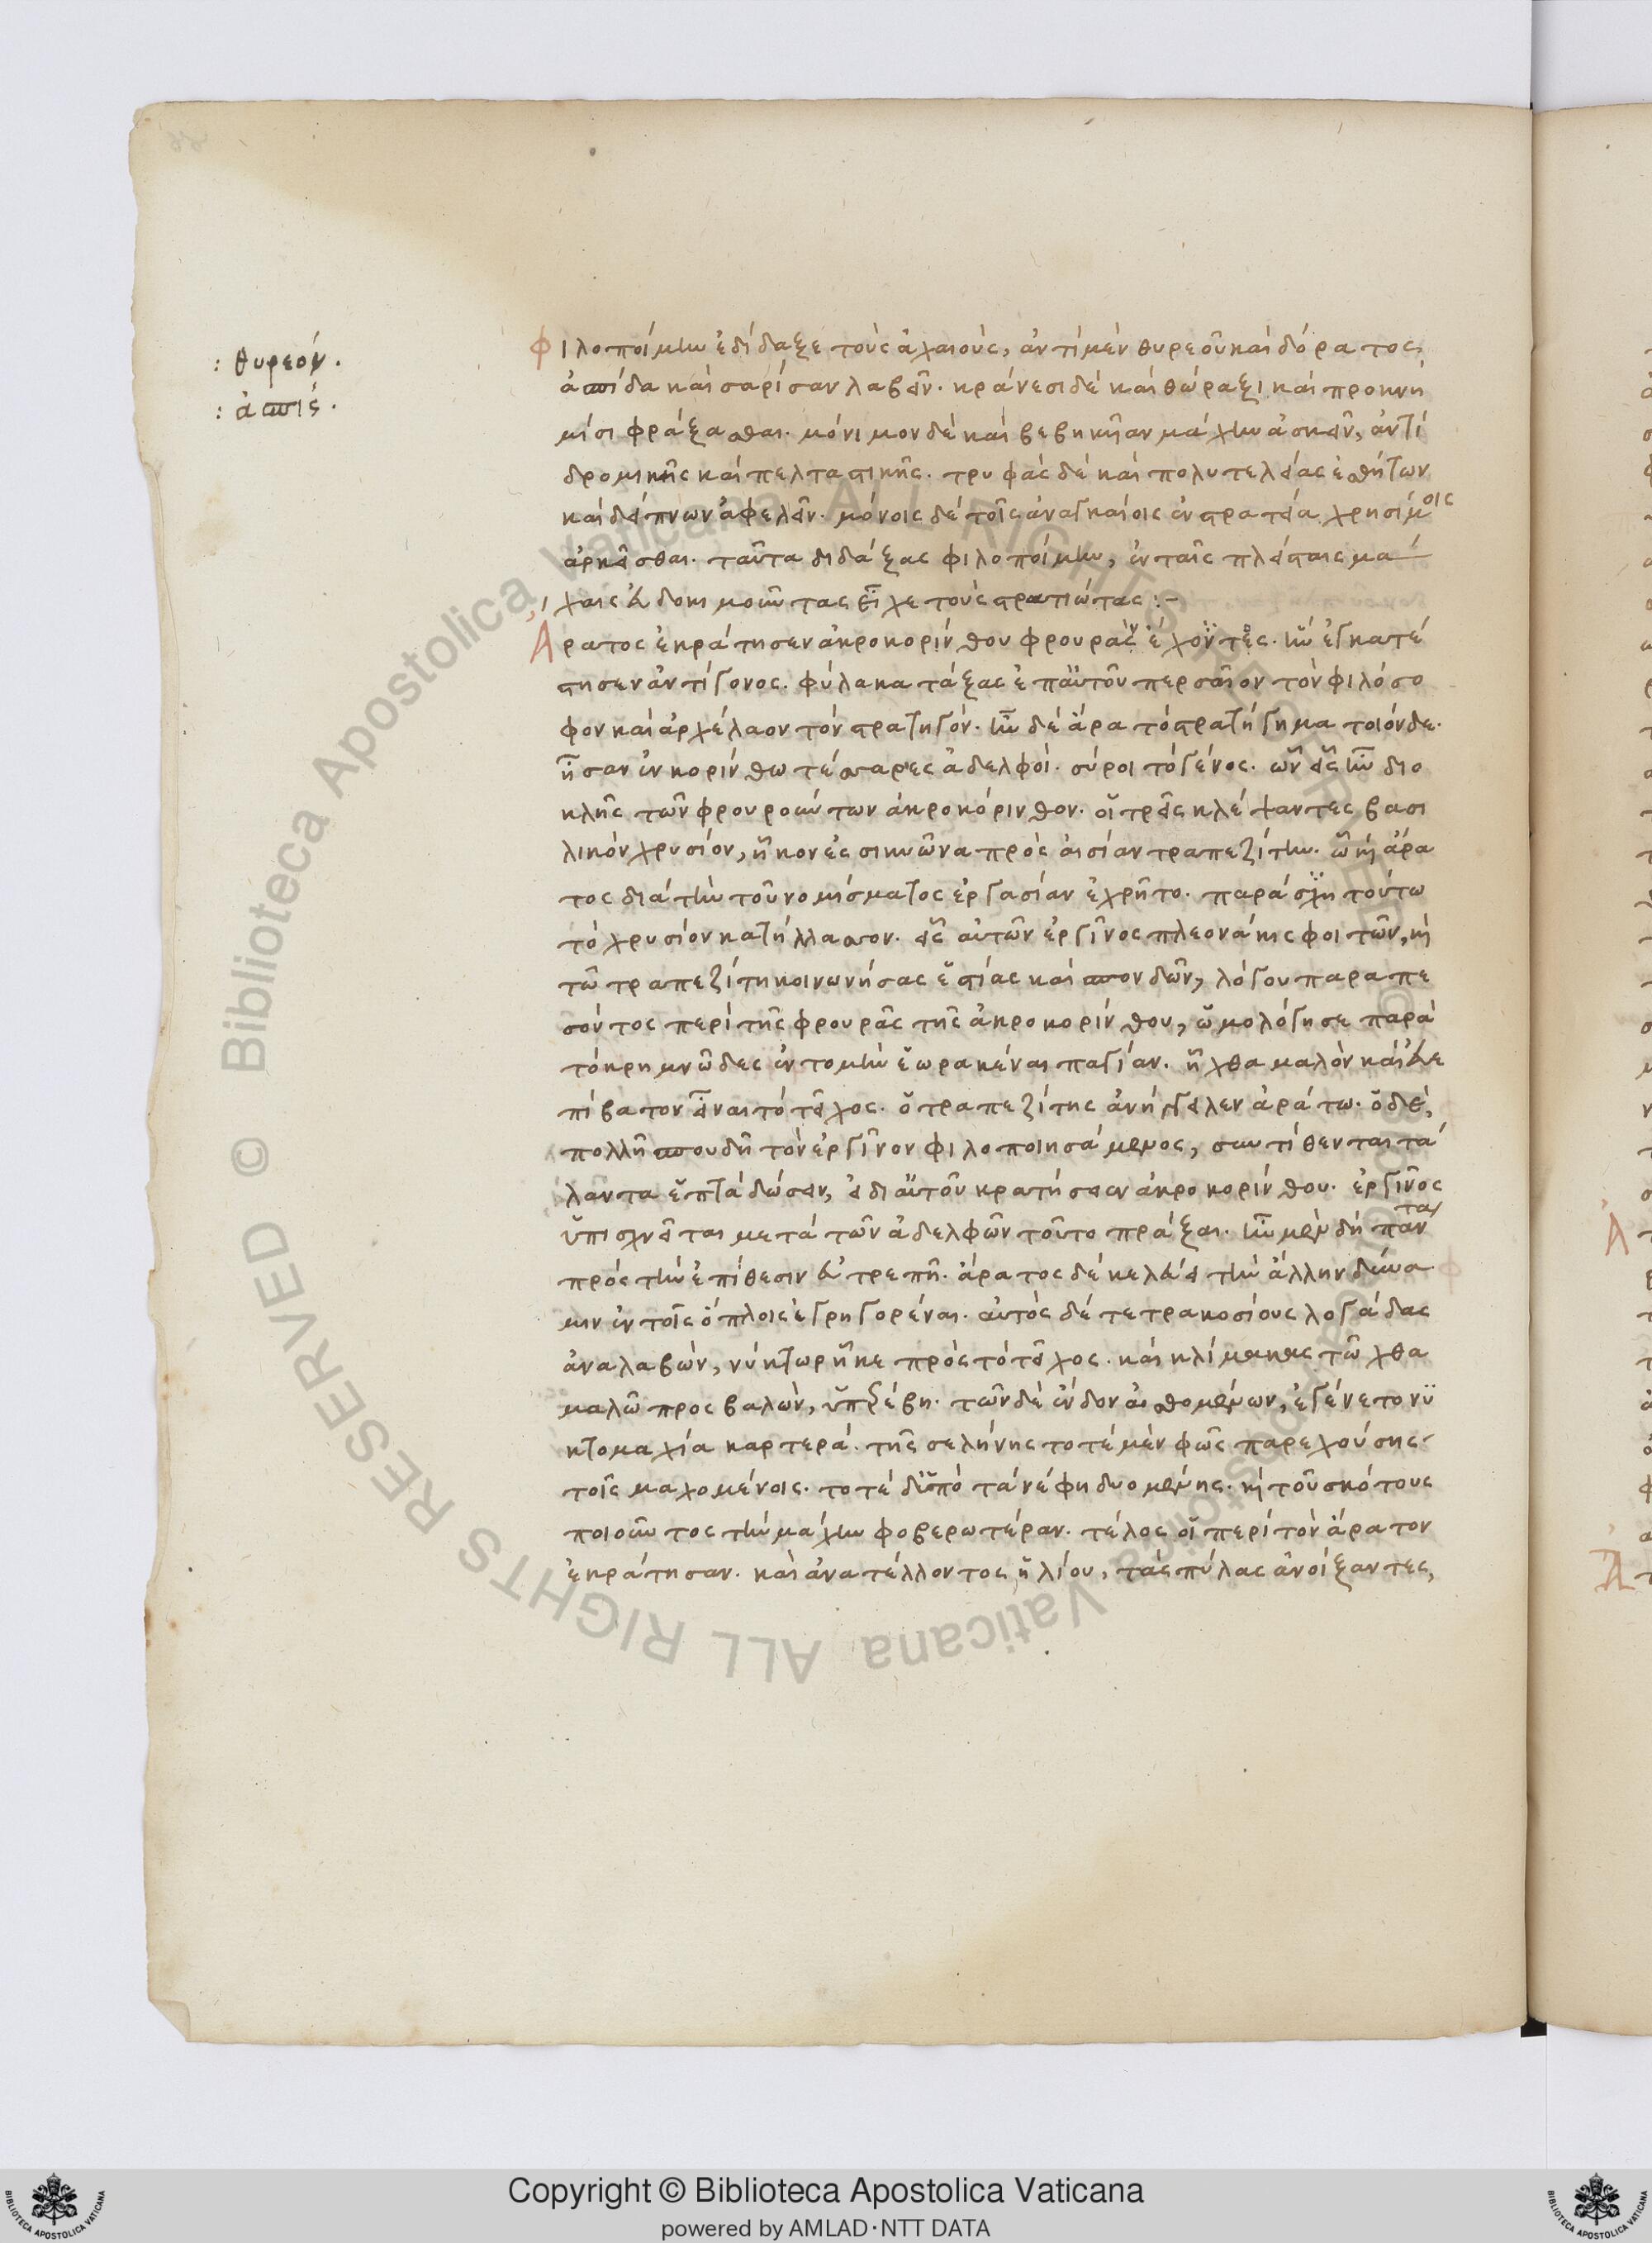 : θυρεόν.
: ἀσπίς.
Φιλοποίμην ἐδίδαξε τοὺς ἀχαιούς, ἀντὶ μὲν θυρεοῦ καὶ δόρατος,
ἀσπίδα καὶ σαρίσαν λαβεῖν. κράνεσι δὲ καὶ θώραξι καὶ προκνη
μίσι φράξασθαι. μόνιμον δὲ καὶ βεβηκῖαν μάχην ἀσκεῖν, ἀντὶ
δρομικῆς καὶ πελταστικῆς. τρυφὰς δὲ καὶ πολυτελείας ἐσθήτων
καὶ δείπνων ἀφελεῖν. μόνοις δὲ τοῖς ἀναγκαίοις ἐν στρατεία χρησίμοις
ἀρκεῖσθαι. ταῦτα διδάξας φιλοποίμην, ἐν ταῖς πλείσταις μά
χαις εὐδοκιμοῦντας εἶχε τοὺς στρατιώτας :-
Ἄρατος ἐκράτησεν ἀκροκορίνθου φρουρὰν ἔχοντος. ἣν ἐγκατέ
στησεν ἀντίγονος. φύλακα τάξας ἐπ' αὐτοῦ περσαῖον τὸν φιλόσο
φον καὶ ἀρχέλαον τὸν στρατηγόν. ἦν δὲ ἄρα τὸ στρατήγημα τοιόνδε.
ἦσαν ἐν κορίνθω τέσσαρες ἀδελφοί. σύροι τὸ γένος. ὧν εἷς ἦν διο
κλῆς τῶν φρουρούντων ἀκροκόρινθον. οἱ τρεῖς κλέψαντες βασι
λικὸν χρυσίον, ἧκον ἐς σικυῶνα πρὸς αἰσίαν τραπεζίτην. ὧ καὶ ἄρα
τος διὰ τὴν τοῦ νομίσματος ἐργασίαν ἐχρῆτο. παράσχη τούτω
τὸ χρυσίον κατήλλασσον. εἷς αὐτῶν ἐργῖνος πλεονάκις φοιτῶν, καὶ
τῶ τραπεζίτη κοινωνήσας ἑστίας καὶ σπονδῶν, λόγου παραπε
σόντος περὶ τῆς φρουρᾶς τῆς ἀκροκορίνθου, ὡμολόγησε παρὰ
τὸ κρημνῶδες ἐντομὴν ἑωρακέναι παγίαν. ἧ χθαμαλὸν καὶ εὐε
πίβατον εἶναι τὸ τεῖχος. ὁ τραπεζίτης ἀνήγγειλεν ἀράτω. ὁ δέ,
πολλῆ σπουδῆ τὸν ἐργῖνον φιλοποιησάμενος, συντίθενται τά
λαντα ἑπτὰ δώσειν, εἰ δι' αὐτοῦ κρατήσειεν ἀκροκορίνθου. ἐργῖνος
ὑπισχνεῖται μετὰ τῶν ἀδελφῶν τοῦτο πράξαι. ἦν μὲν δὴ πάντα
πρὸς τὴν ἐπίθεσιν εὐτρεπῆ. ἄρατος δὲ κελεύει τὴν ἄλλην δύνα
μιν ἐν τοῖς ὅπλοις ἐγρηγορέναι. αὐτὸς δὲ τετρακοσίους λογάδας
ἀναλαβών, νύκτωρ ἧκε πρὸς τὸ τεῖχος. καὶ κλίμακας τῶ χθα
μαλῶ προςβαλών, ὑπερέβη. τῶν δὲ ἔνδον αἰσθομένων, ἐγένετο νυ
κτομαχία καρτερά. τῆς σελήνης τοτὲ μὲν φῶς παρεχούσης
τοῖς μαχομένοις. τοτὲ δ' ὑπὸ τὰ νέφη δυομένης. καὶ τοῦ σκότους
ποιοῦντος τὴν μάχην φοβερωτέραν. τέλος οἱ περὶ τὸν ἄρατον
ἐκράτησαν. καὶ ἀνατέλλοντος ἡλίου, τὰς πύλας ἀνοίξαντες,
© Biblioteca Apostolica Vaticana ALL RIGHTS RESERVED © Biblioteca Apostolica Vaticana ALL RIGHTS RESERVED
Copyright © Biblioteca Apostolica Vaticana
powered by AMLAD·NTT DATA
BIBLIOTECA APOSTOLICA VATICANA
BIBLIOTECA APOSTOLICA VATICANA